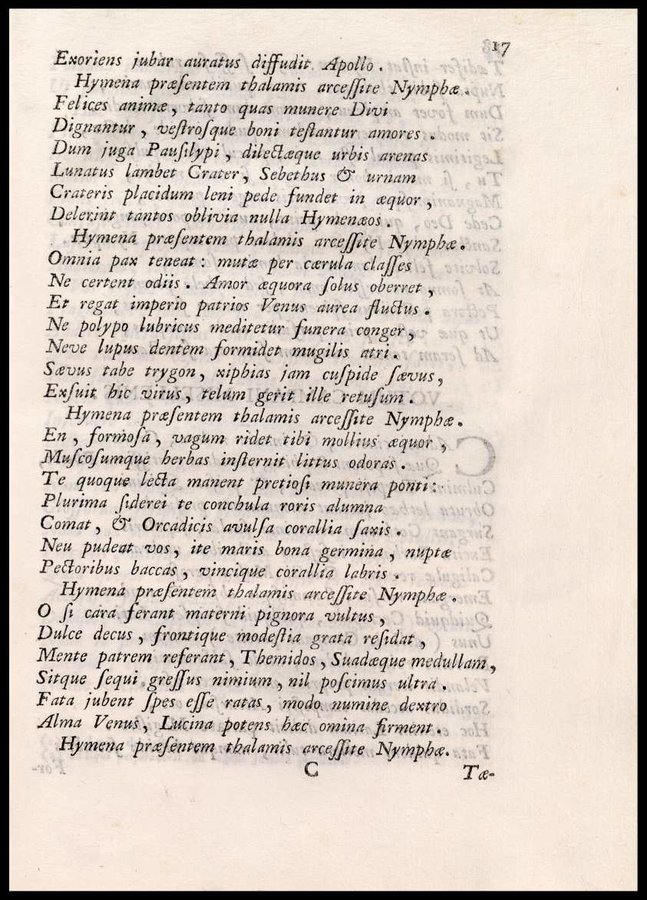 17
Exoriens jubar auratus diffudit Apollo.
Hymena præſentem thalamis arceſſite Nymphæ.
Felices animæ, tanto quas munere Divi
Dignantur, veſtroſque boni teſtantur amores.
Dum juga Pauſilypi, dilectæque urbis arenas
Lunatus lambet Crater, Sebethus & urnam
Crateris placidum leni pede fundet in æquor,
Delerint tantos oblivia nulla Hymenæos.
Hymena præſentem thalamis arceſſite Nymphæ.
Omnia pax teneat: mutæ per cærula claſſes
Ne certent odiis. Amor æquora ſolus oberret,
Et regat imperio patrios Venus aurea fluctus.
Ne polypo lubricus meditetur funera conger,
Neve lupus dentem formidet mugilis atri.
Sævus tabe trygon, xiphias jam cuſpide ſævus,
Exſuit hic virus, telum gerit ille retuſum.
Hymena præſentem thalamis arceſſite Nymphæ.
En, formoſa, vagum ridet tibi mollius æquor,
Muſcoſumque herbas inſternit littus odoras.
Te quoque lecta manent pretioſi munera ponti:
Plurima ſiderei te conchula roris alumna
Comat, & Orcadicis avulſa corallia ſaxis.
Neu pudeat vos, ite maris bona germina, nuptæ
Pectoribus baccas, vincique corallia labris.
Hymena præſentem thalamis arceſſite Nymphæ.
O ſi cara ferant materni pignora vultus,
Dulce decus, frontique modeſtia grata reſidat,
Mente patrem referant, Themidos, Suadæque medullam,
Sitque ſequi greſſus nimium, nil poſcimus ultra.
Fata jubent ſpes eſſe ratas, modo numine dextro
Alma Venus, Lucina potens hæc omina firment.
Hymena præſentem thalamis arceſſite Nymphæ.
C
Tæ-